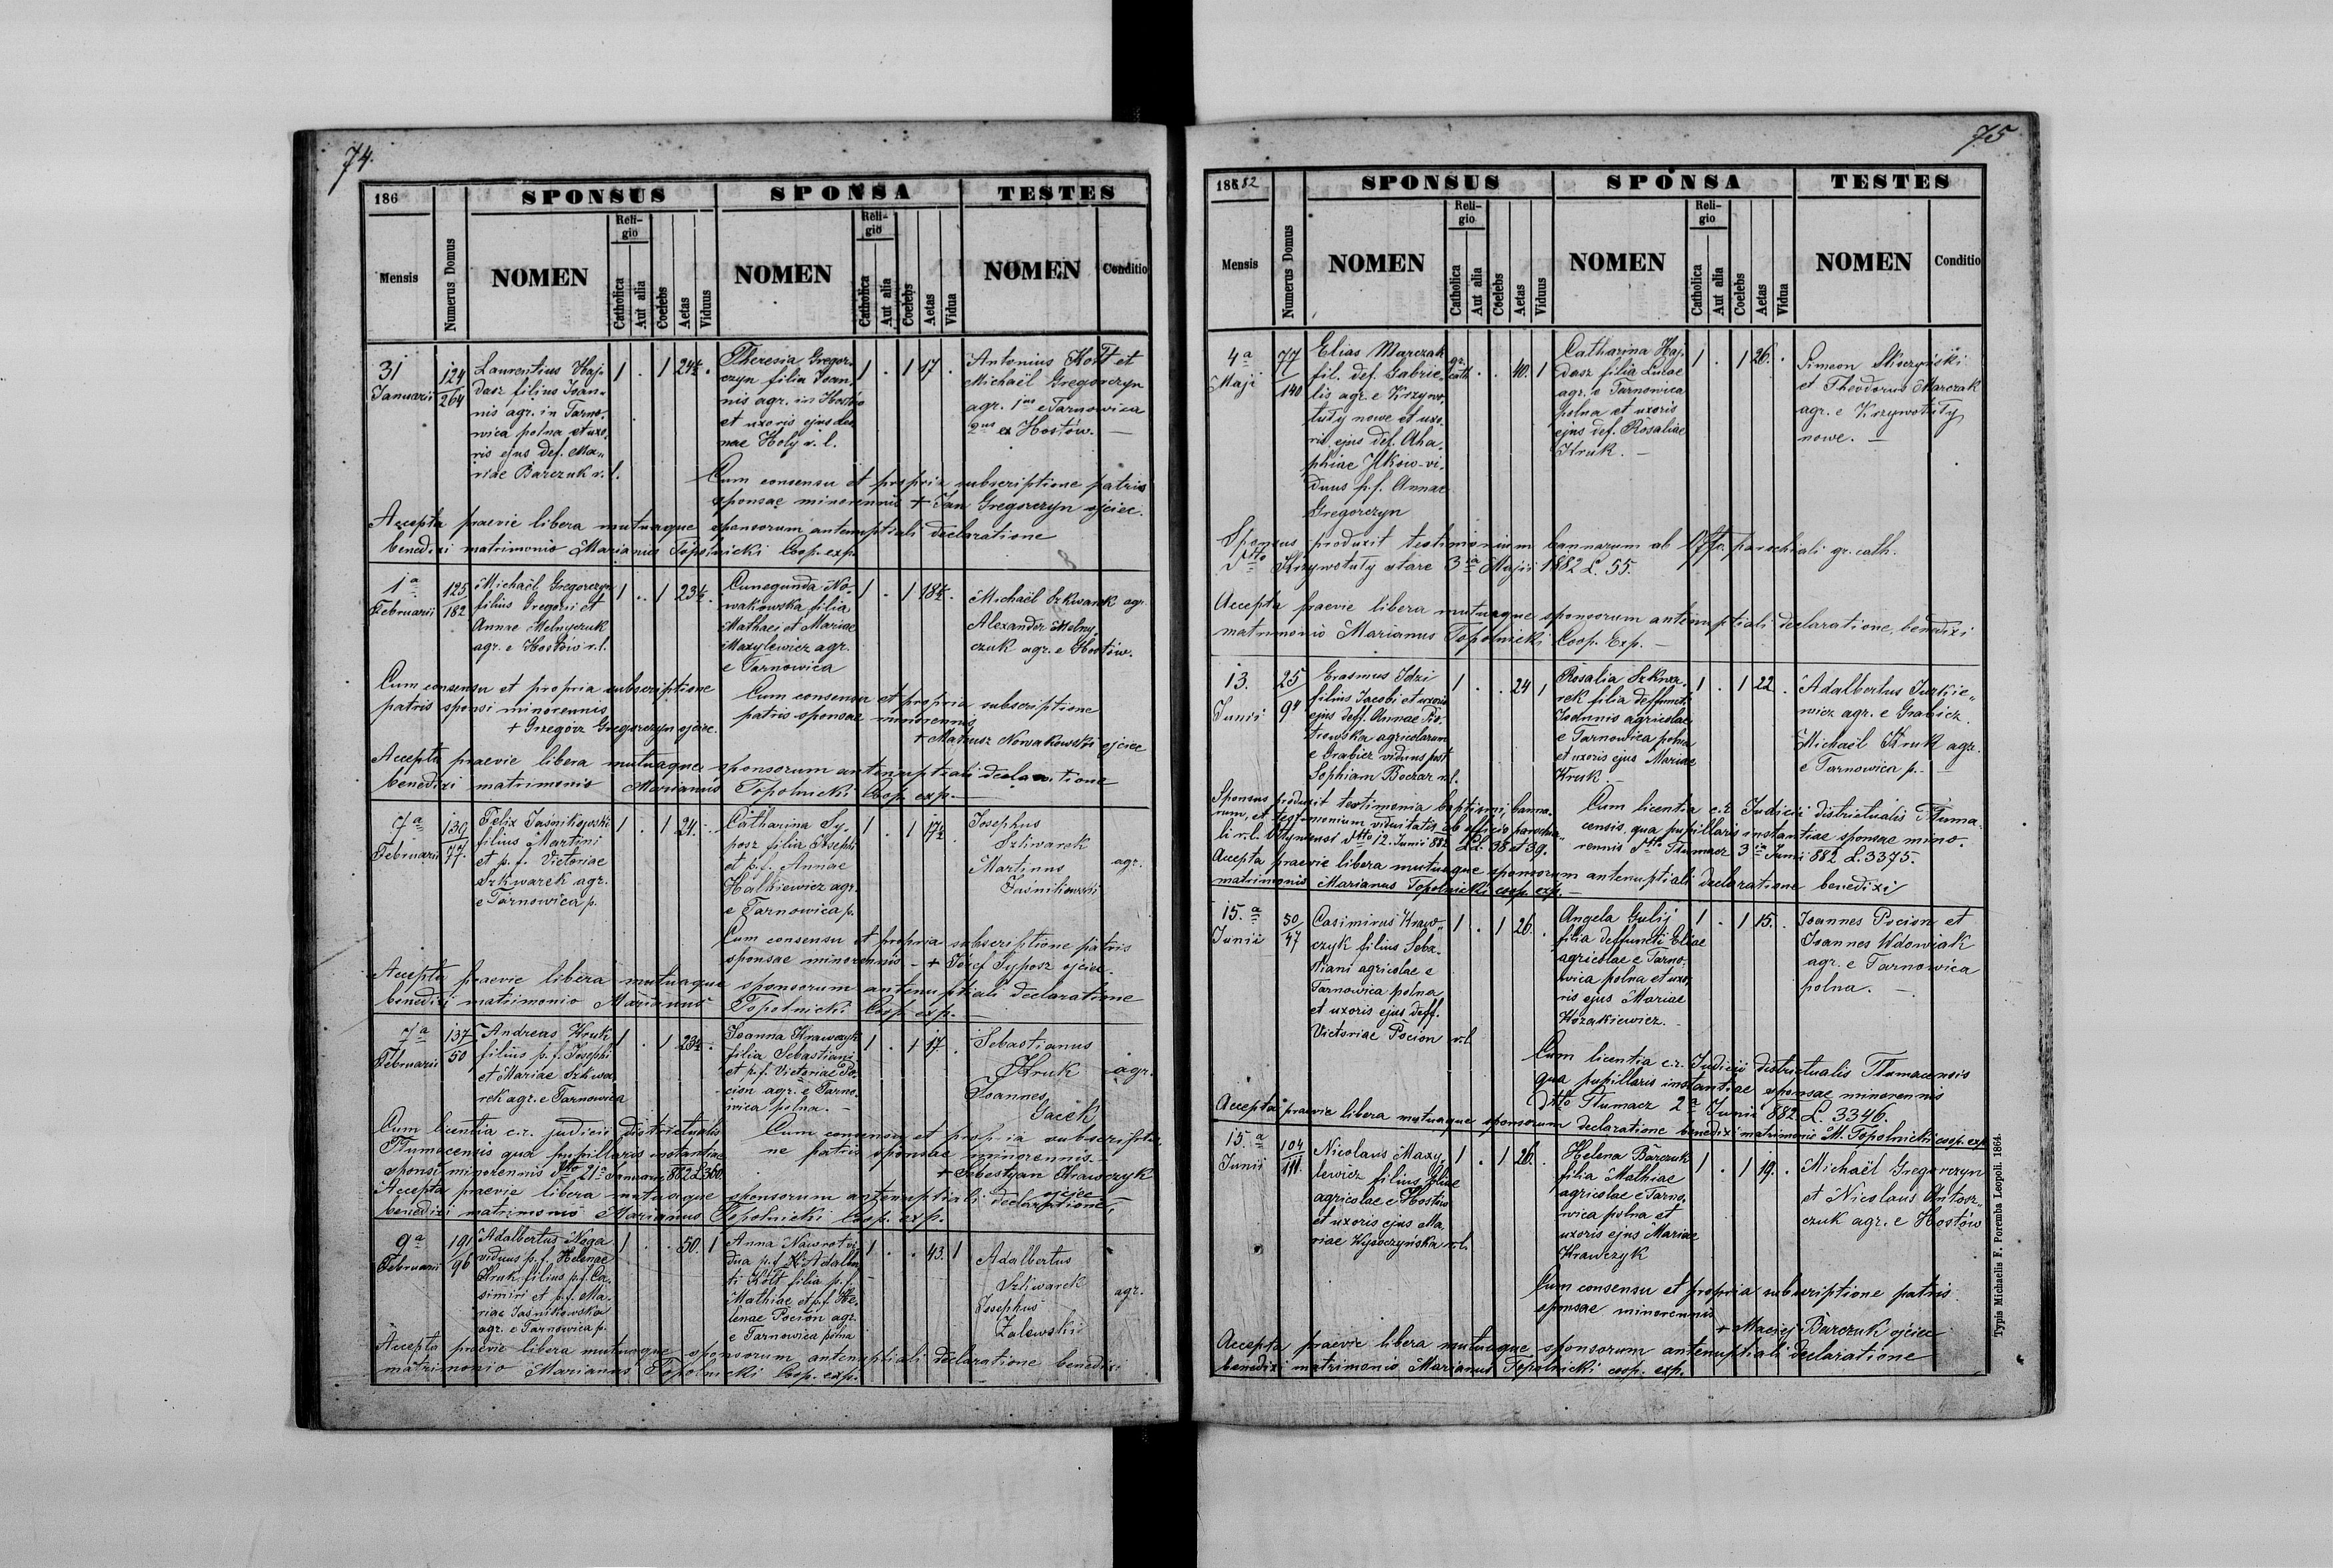 74.
186
SPONSUS
SPONSA
TESTES
Mensis
Numerus Domus
NOMEN
Religio
Catholica
Aut alia
Coelebs
Aetas
Viduus
NOMEN
Religio
Catholica
Aut alia
Coelebs
Aetas
Vidua
NOMEN
Conditio
31 Januarii
124
264
Laurentius Haj-
dasz filius Ioan-
nis agr. in Tarno-
wica polna et uxo-
ris ejus def. Ma-
riae Barczuk r. l.
1 . 1 24½ .
Theresia Gregor-
czyn filia Ioan-
nis agr. in Hostów
et uxoris ejus
nae Holy r. l.
1 . 1 17 .
Antonius Kott et
Michaël Gregorczyn
agr. 1us e Tarnowica
2us ex Hostów. —
Cum consensu et propria subscriptione patris
sponsae minorennis + Jan Gregorczyn ojciec.
Accepta praevie libera mutuaque sponsorum antenuptiali declaratione
benedixi matrimonio Marianus Topolnicki Coop. exp.
1a Februarii
125
182
Michaël Gregorczyn
filius Gregorii et
Annae Melnyczuk
agr. e Hostów r. l.
1 . . 1 23½ .
Cunegunda No-
wakowska filia
Mathaei et Mariae
Mazylewicz agr.
e Tarnowica
1 . 1 18½ .
Michaël Szkwarek agr.
Alexander Melny-
czuk agr. e Hostów.
Cum consensu et propria subscriptione
patris sponsi minorennis
+ Grzegorz Gregorczyn ojciec.
Cum consensu et propria subscriptione
patris sponsae minorennis
+ Mateusz Nowakowski ojciec
Accepta praevie libera mutuaque sponsorum antenuptiali declaratione
benedixi matrimonio Marianus Topolnicki Coop. exp. —
7a Februarii
139
77.
Felix Jaśnikowski
filius Martini
et p. f. Victoriae
Szkwarek agr.
e Tarnowica p.
1 . 1 24. .
Catharina Sy-
posz filia Josephi
et p. f. Annae
Halkiewicz agr.
e Tarnowica p.
1 . 1 17½ .
Josephus
Szkwarek
Martinus
Jaśnikowski
agr.
Cum consensu et propria subscriptione patris
sponsae minorennis - + Józef Syposz ojciec.
Accepta praevie libera mutuaque sponsorum antenuptiali declaratione
benedixi matrimonio Marianus Topolnicki Coop. exp. —
7a Februarii
137
50
Andreas Kruk
filius p. f. Josephi
et Mariae Szkwa-
rek agr. e Tarnowica
1 . 1 23½ .
Joanna Krawczyk
filia Sebastiani
et p. f. Victoriae Po-
cion agr. e Tarno-
wica polna. —
1 . 1 17 .
Sebastianus
Kruk
Joannes
Gacek
agr.
Cum licentia c. r. judicii districtualis
Tłumacensis qua pupillaris instantiae
sponsi minorennis dtto 21a Januarii 882 L 360.
Cum consensu et propria subscriptio-
ne patris sponsae minorennis. —
+ Sebestyan Krawczyk
ojciec —
Accepta praevie libera mutuaque sponsorum antenuptiali declaratione,
benedixi matrimonio Marianus Topolnicki Coop. exp.
9a Februarii
191
96
Adalbertus Noga
viduus p. f. Helenae
Kruk filius p. f. Ca-
simiri et p. f. Ma-
riae Jaśnikowska
agr. e Tarnowica p.
1 . . 50. 1
Anna Nawrot vi-
dua p. f. Adalber-
ti Kott filia p. f.
Mathiae et p. f. He-
lenae Pocion agr.
e Tarnowica polna
1 . . 43. 1
Adalbertus
Szkwarek
Josephus
Zalewski
agr.
Accepta praevie libera mutuaque sponsorum antenuptiali declaratione benedixi
matrimonio Marianus Topolnicki Coop. exp.
75
18682
SPONSUS
SPONSA
TESTES
Mensis
Numerus Domus
NOMEN
Religio
Catholica
Aut alia
Coelebs
Aetas
Viduus
NOMEN
Religio
Catholica
Aut alia
Coelebs
Aetas
Vidua
NOMEN
Conditio
4a Maji
77
140
Elias Marczak
fil. def. Gabrie-
lis agr. e Krzywo-
tuły nowe et uxo-
ris ejus def. Aha-
phiae Ilkow - vi-
duus p. f. Annae
Gregorczyn
gr. cath. . . 40. 1
Catharina Haj-
dasz filia Lucae
agr. e Tarnowica
polna et uxoris
ejus def. Rosaliae
Kruk. —
1 . 1 26. .
Simeon Skoczyński
et Theodorus Marczak
agr. e Krzywotuły
nowe. —
Sponsus produxit testimonium bannorum ab Offo. parochiali gr. cath.
dtto Krzywotuły stare 3ia Maji 1882 L. 55.
Accepta praevie libera mutuaque sponsorum antenuptiali declaratione, benedixi
matrimonio Marianus Topolnicki Coop. Exp. —
13. Junii
25
94
Erasmus Idzi
filius Jacobi et uxoris
ejus deff. Annae Pio-
trowska agricolarum
e Grabicz viduus post
Sophiam Boczar r. l.
1 . . 24 1
Rosalia Szkwa-
rek filia deffuncti
Joannis agricolae
e Tarnowica polna
et uxoris ejus Mariae
Kruk. —
1 . 1 22 .
Adalbertus Jurkie-
wicz agr. e Grabicz.
Michaël Kruk agr.
e Tarnowica p. —
Sponsus produxit testimonia baptismi, banno-
rum, et testimonium viduitatis ab officio parochia-
li r. l. Ottyniensi dtto 12. Junii 882 LL 38 et 39.
Cum licentia c. r. Judicii districtualis Tłuma-
censis qua pupillaris instantiae sponsae mino-
rennis dtto Tłumacz 3ia Junii 882 L. 3375.
Accepta praevie libera mutuaque sponsorum antenuptiali declaratione benedixi
matrimonio Marianus Topolnicki coop. exp. —
15.a Junii
50
47
Casimirus Kraw-
czyk filius Seba-
stiani agricolae e
Tarnowica polna
et uxoris ejus deff.
Victoriae Pocion r. l.
1 . 1 26. .
Angela Gulij
filia deffuncti Eliae
agricolae e Tarno-
wica polna et uxo-
ris ejus Mariae
Kozakiewicz. —
1 . 1 15. .
Ioannes Pocion et
Ioannes Wdowiak
agr. e Tarnowica
polna. —
Cum licentia c. r. Judicii districtualis Tłumacensis
qua pupillaris instantiae sponsae minorennis
dtto Tłumacz 2a Junii 882 L. 3346.
Accepta praevie libera mutuaque sponsorum declaratione benedixi matrimonio M. Topolnicki coop. exp.
15.a Junii
104
111.
Nicolaus Mazy-
lewicz filius Eliae
agricolae e Hostów
et uxoris ejus Ma-
riae Wysoczyńska r. l.
1 . 1 26. .
Helena Barczuk
filia Mathiae
agricolae e Tarno-
wica polna et
uxoris ejus Mariae
Krawczyk
1 . 1 19. .
Michaël Gregorczyn
et Nicolaus Antosz-
czuk agr. e Hostów
Cum consensu et propria subscriptione patris
sponsae minorennis
+ Maciej Barczuk ojciec
Accepta praevie libera mutuaque sponsorum antenuptiali declaratione
benedixi matrimonio Marianus Topolnicki coop. exp.
Typis Michaelis F. Poremba Leopoli. 1864.